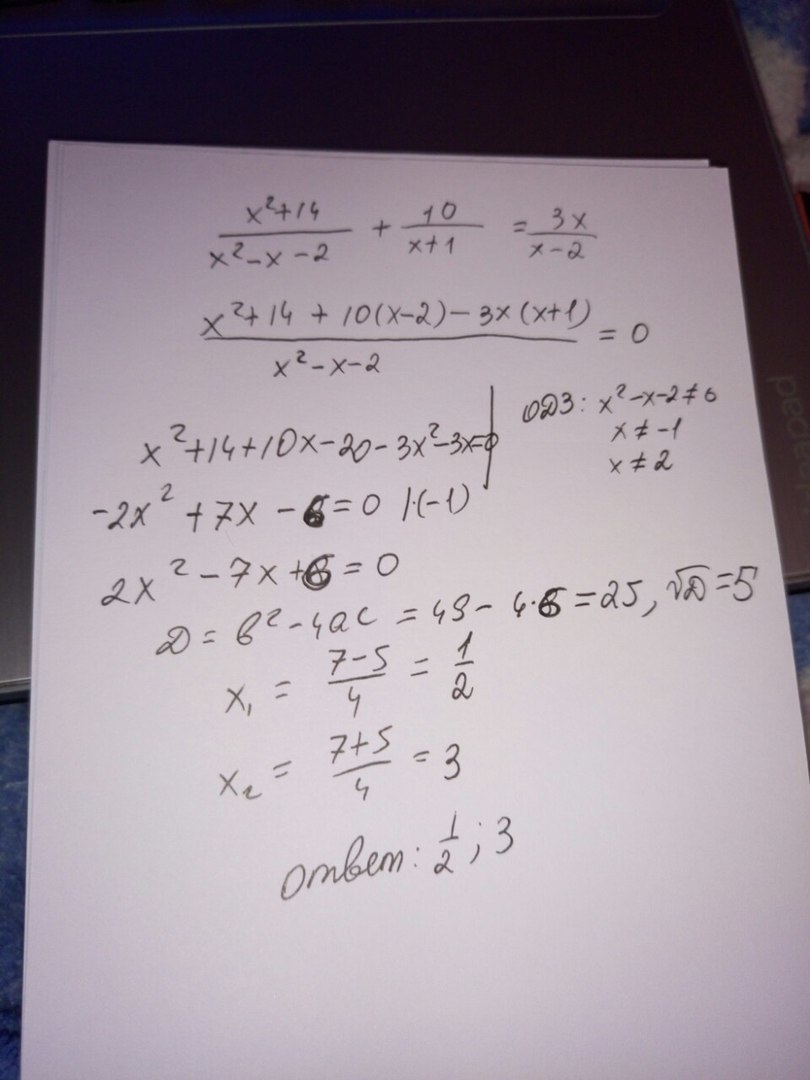 x²+14/x²-x-2 + 10/x+1 = 3x/x-2
x²+14 + 10(x-2) - 3x(x+1)/x²-x-2 = 0
x²+14+10x-20-3x²-3x=0
ОДЗ: x²-x-2≠0
x≠-1
x≠2
-2x²+7x-6=0 |·(-1)
2x²-7x+6=0
D = b²-4ac = 49-4·6=25, √D=5
x₁ = 7-5/4 = 1/2
x₂ = 7+5/4 = 3
ответ: 1/2; 3